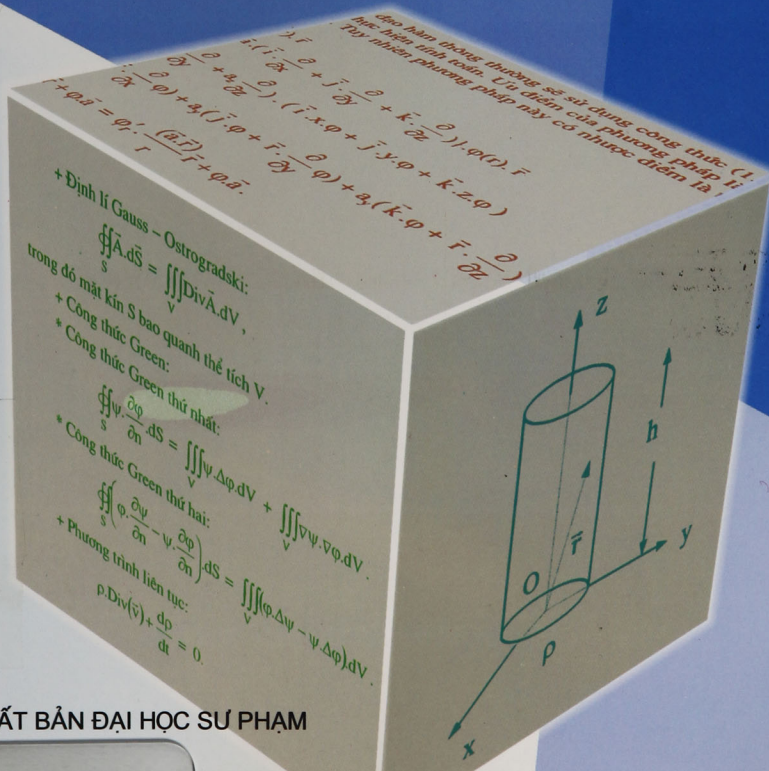 đạo hàm thông thường sẽ sử dụng công thức (1.
hực hiện tính toán. Ưu điểm của phương pháp
Tuy nhiên phương pháp này có nhược điểm là
).r̄
i.( i.∂/∂x + j̄.∂/∂y + k̄.∂/∂z )).φ(r).r̄
∂/∂y + a_z ∂/∂z ). ( ī.x.φ + j̄.y.φ + k̄.z.φ )
∂/∂x φ) + a_y( j̄.φ + r̄.∂/∂y φ) + a_z( k̄.φ + r̄.∂/∂z
r̄ + φ.ā = φ'_r. (ā.r̄)/r r̄ + φ.ā.
+ Định lí Gauss – Ostrogradski:
∯_S Ā.dS̄ = ∭_V DivĀ.dV ,
trong đó mặt kín S bao quanh thể tích V.
+ Công thức Green:
* Công thức Green thứ nhất:
∯_S ψ.∂φ/∂n.dS = ∭_V ψ.Δφ.dV + ∭_V ∇ψ.∇φ.dV .
* Công thức Green thứ hai:
∯_S (φ.∂ψ/∂n − ψ.∂φ/∂n).dS = ∭_V (φ.Δψ − ψ.Δφ).dV .
+ Phương trình liên tục:
ρ.Div(v̄) + dρ/dt = 0.
z
h
y
r̄
O
ρ
x
ẤT BẢN ĐẠI HỌC SƯ PHẠM